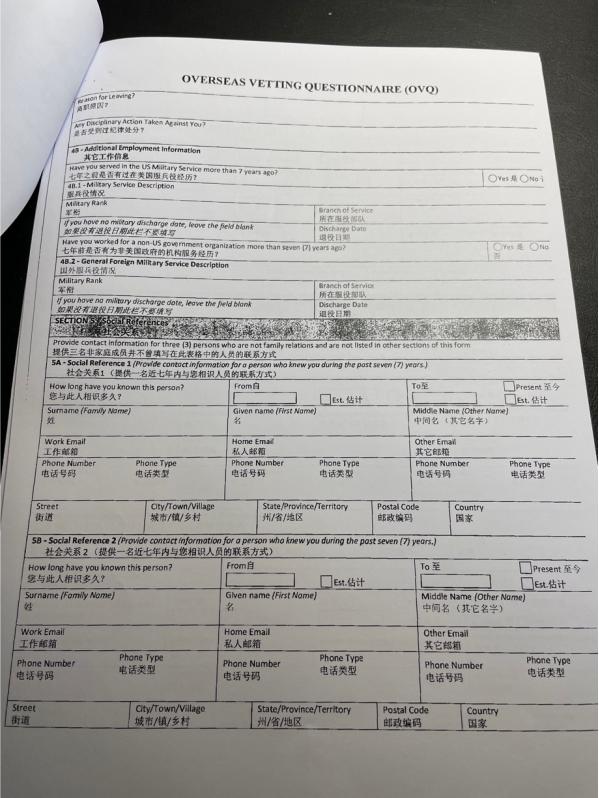 OVERSEAS VETTING QUESTIONNAIRE (OVQ)
Reason for Leaving?
离职原因？
Any Disciplinary Action Taken Against You?
是否受到过纪律处分？
4B - Additional Employment Information
其它工作信息
Have you served in the US Military Service more than 7 years ago?
七年之前是否有过在美国服兵役经历？
Yes 是 No
4B.1 - Military Service Description
服兵役情况
Military Rank
军衔
Branch of Service
所在服役部队
If you have no military discharge date, leave the field blank
如果没有退役日期此栏不要填写
Discharge Date
退役日期
Have you worked for a non-US government organization more than seven (7) years ago?
七年前是否有为非美国政府的机构服务经历？
Yes 是 No
否
4B.2 - General Foreign Military Service Description
国外服兵役情况
Military Rank
军衔
Branch of Service
所在服役部队
If you have no military discharge date, leave the field blank
如果没有退役日期此栏不要填写
Discharge Date
退役日期
SECTION 5 Social References
社会关系
Provide contact information for three (3) persons who are not family relations and are not listed in other sections of this form
提供三名非家庭成员并不曾填写在此表格中的人员的联系方式
5A - Social Reference 1 (Provide contact information for a person who knew you during the past seven (7) years.)
社会关系1（提供一名近七年内与您相识人员的联系方式）
How long have you known this person?
您与此人相识多久？
From自
Est. 估计
To至
Present 至今
Est. 估计
Surname (Family Name)
姓
Given name (First Name)
名
Middle Name (Other Name)
中间名（其它名字）
Work Email
工作邮箱
Home Email
私人邮箱
Other Email
其它邮箱
Phone Number Phone Type
电话号码 电话类型
Phone Number Phone Type
电话号码 电话类型
Phone Number Phone Type
电话号码 电话类型
Street
街道
City/Town/Village
城市/镇/乡村
State/Province/Territory
州/省/地区
Postal Code
邮政编码
Country
国家
5B - Social Reference 2 (Provide contact information for a person who knew you during the past seven (7) years.)
社会关系 2（提供一名近七年内与您相识人员的联系方式）
How long have you known this person?
您与此人相识多久？
From自
Est.估计
To 至
Present 至今
Est.估计
Surname (Family Name)
姓
Given name (First Name)
名
Middle Name (Other Name)
中间名（其它名字）
Work Email
工作邮箱
Home Email
私人邮箱
Other Email
其它邮箱
Phone Number Phone Type
电话号码 电话类型
Phone Number Phone Type
电话号码 电话类型
Phone Number Phone Type
电话号码 电话类型
Street
街道
City/Town/Village
城市/镇/乡村
State/Province/Territory
州/省/地区
Postal Code
邮政编码
Country
国家